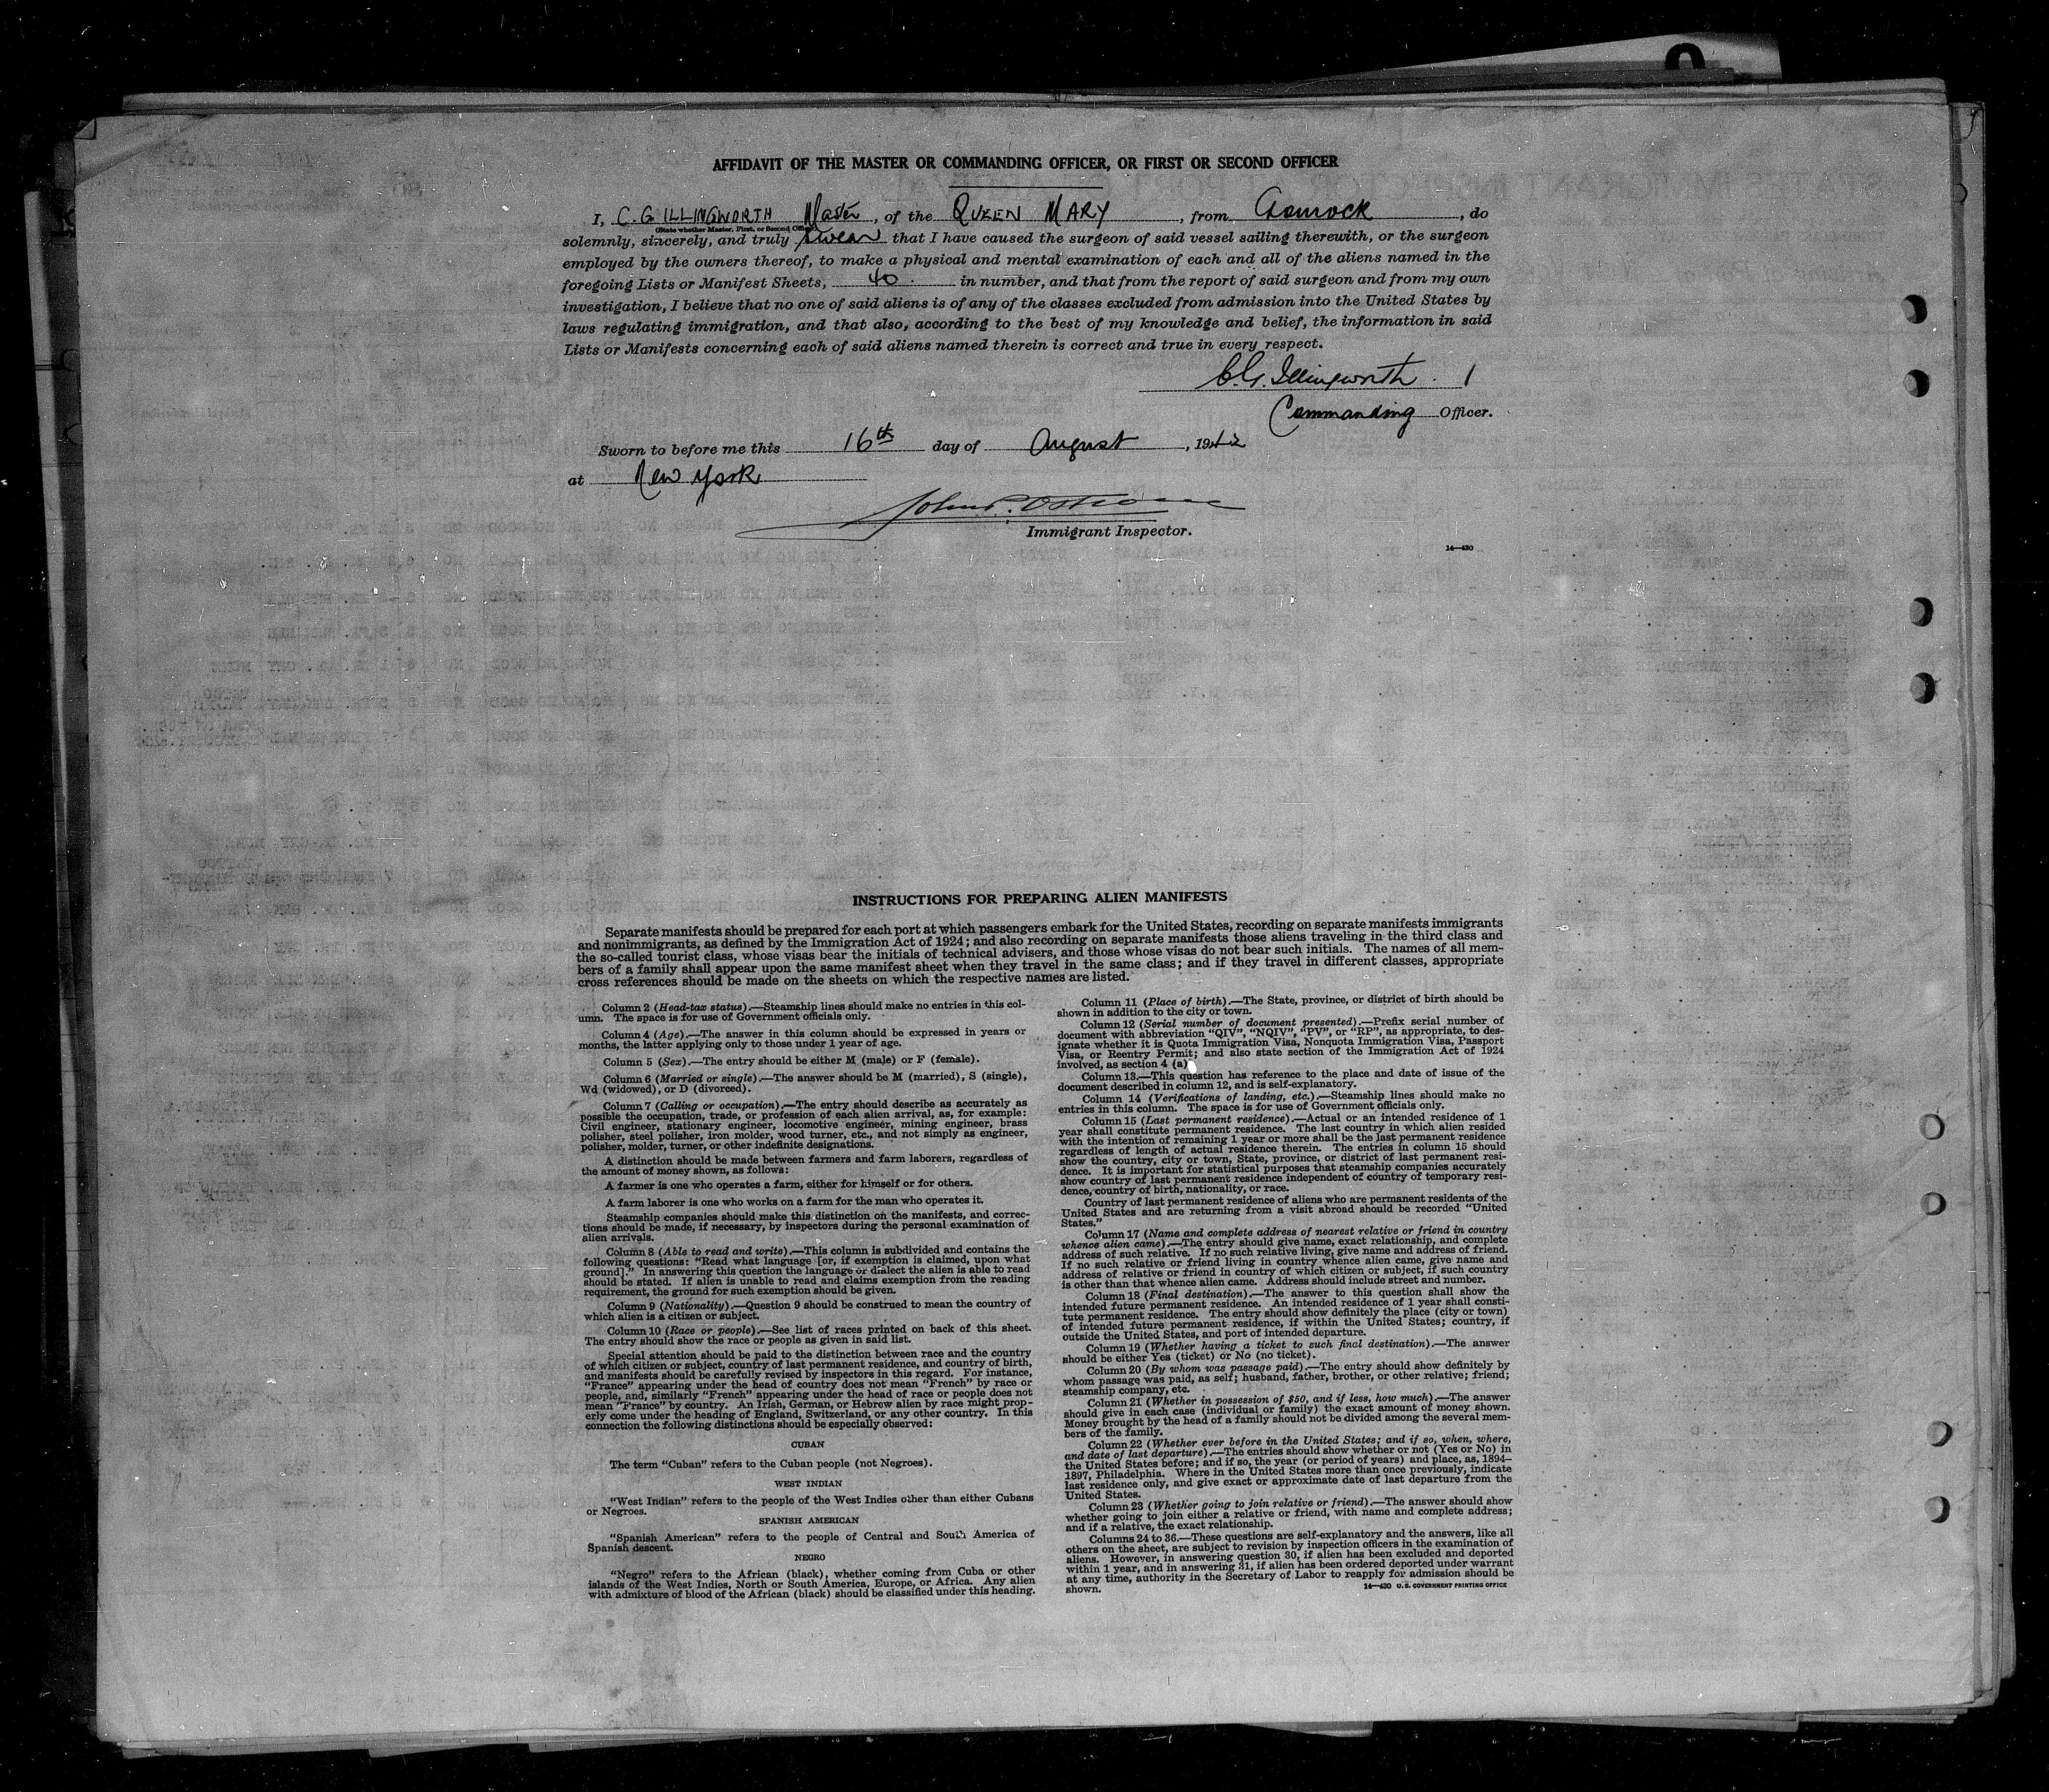 AFFIDAVIT OF THE MASTER OR COMMANDING OFFICER, OR FIRST OR SECOND OFFICER
I, C. G ILLINGWORTH Master, of the QUEEN MARY, from Gourock, do
(State whether Master, First, or Second Officer)
solemnly, sincerely, and truly swear that I have caused the surgeon of said vessel sailing therewith, or the surgeon
employed by the owners thereof, to make a physical and mental examination of each and all of the aliens named in the
foregoing Lists or Manifest Sheets, 40 in number, and that from the report of said surgeon and from my own
investigation, I believe that no one of said aliens is of any of the classes excluded from admission into the United States by
laws regulating immigration, and that also, according to the best of my knowledge and belief, the information in said
Lists or Manifests concerning each of said aliens named therein is correct and true in every respect.
C. G. Illingworth.
Commanding Officer.
Sworn to before me this 16th day of August, 1942
at New York
Immigrant Inspector.
14—430
INSTRUCTIONS FOR PREPARING ALIEN MANIFESTS
Separate manifests should be prepared for each port at which passengers embark for the United States, recording on separate manifests immigrants
and nonimmigrants, as defined by the Immigration Act of 1924; and also recording on separate manifests those aliens traveling in the third class and
the so-called tourist class, whose visas bear the initials of technical advisers, and those whose visas do not bear such initials. The names of all mem-
bers of a family shall appear upon the same manifest sheet when they travel in the same class; and if they travel in different classes, appropriate
cross references should be made on the sheets on which the respective names are listed.
Column 2 (Head-tax status).—Steamship lines should make no entries in this col-
umn. The space is for use of Government officials only.
Column 4 (Age).—The answer in this column should be expressed in years or
months, the latter applying only to those under 1 year of age.
Column 5 (Sex).—The entry should be either M (male) or F (female).
Column 6 (Married or single).—The answer should be M (married), S (single),
Wd (widowed), or D (divorced).
Column 7 (Calling or occupation).—The entry should describe as accurately as
possible the occupation, trade, or profession of each alien arrival, as, for example:
Civil engineer, stationary engineer, locomotive engineer, mining engineer, brass
polisher, steel polisher, iron molder, wood turner, etc., and not simply as engineer,
polisher, molder, turner, or other indefinite designations.
A distinction should be made between farmers and farm laborers, regardless of
the amount of money shown, as follows:
A farmer is one who operates a farm, either for himself or for others.
A farm laborer is one who works on a farm for the man who operates it.
Steamship companies should make this distinction on the manifests, and correc-
tions should be made, if necessary, by inspectors during the personal examination of
alien arrivals.
Column 8 (Able to read and write).—This column is subdivided and contains the
following questions: "Read what language [or, if exemption is claimed, upon what
ground]." In answering this question the language or dialect the alien is able to read
should be stated. If alien is unable to read and claims exemption from the reading
requirement, the ground for such exemption should be given.
Column 9 (Nationality).—Question 9 should be construed to mean the country of
which alien is a citizen or subject.
Column 10 (Race or people).—See list of races printed on back of this sheet.
The entry should show the race or people as given in said list.
Special attention should be paid to the distinction between race and the country
of which citizen or subject, country of last permanent residence, and country of birth,
and manifests should be carefully revised by inspectors in this regard. For instance,
"France" appearing under the head of country does not mean "French" by race or
people, and, similarly "French" appearing under the head of race or people does not
mean "France" by country. An Irish, German, or Hebrew alien by race might prop-
erly come under the heading of England, Switzerland, or any other country. In this
connection the following distinctions should be especially observed:
CUBAN
The term "Cuban" refers to the Cuban people (not Negroes).
WEST INDIAN
"West Indian" refers to the people of the West Indies other than either Cubans
or Negroes.
SPANISH AMERICAN
"Spanish American" refers to the people of Central and South America of
Spanish descent.
NEGRO
"Negro" refers to the African (black), whether coming from Cuba or other
islands of the West Indies, North or South America, Europe, or Africa. Any alien
with admixture of blood of the African (black) should be classified under this heading.
Column 11 (Place of birth).—The State, province, or district of birth should be
shown in addition to the city or town.
Column 12 (Serial number of document presented).—Prefix serial number of
document with abbreviation "QIV", "NQIV", "PV", or "RP", as appropriate, to des-
ignate whether it is Quota Immigration Visa, Nonquota Immigration Visa, Passport
Visa, or Reentry Permit; and also state section of the Immigration Act of 1924
involved, as section 4 (a)
Column 13.—This question has reference to the place and date of issue of the
document described in column 12, and is self-explanatory.
Column 14 (Verifications of landing, etc.).—Steamship lines should make no
entries in this column. The space is for use of Government officials only.
Column 15 (Last permanent residence).—Actual or an intended residence of 1
year shall constitute permanent residence. The last country in which alien resided
with the intention of remaining 1 year or more shall be the last permanent residence
regardless of length of actual residence therein. The entries in column 15 should
show the country, city or town, State, province, or district of last permanent resi-
dence. It is important for statistical purposes that steamship companies accurately
show country of last permanent residence independent of country of temporary resi-
dence, country of birth, nationality, or race.
Country of last permanent residence of aliens who are permanent residents of the
United States and are returning from a visit abroad should be recorded "United
States."
Column 17 (Name and complete address of nearest relative or friend in country
whence alien came).—The entry should give name, exact relationship, and complete
address of such relative. If no such relative living, give name and address of friend.
If no such relative or friend living in country whence alien came, give name and
address of relative or friend in country of which citizen or subject, if such country
is other than that whence alien came. Address should include street and number.
Column 18 (Final destination).—The answer to this question shall show the
intended future permanent residence. An intended residence of 1 year shall consti-
tute permanent residence. The entry should show definitely the place (city or town)
of intended future permanent residence, if within the United States; country, if
outside the United States, and port of intended departure.
Column 19 (Whether having a ticket to such final destination).—The answer
should be either Yes (ticket) or No (no ticket).
Column 20 (By whom was passage paid).—The entry should show definitely by
whom passage was paid, as self; husband, father, brother, or other relative; friend;
steamship company, etc.
Column 21 (Whether in possession of $50, and if less, how much).—The answer
should give in each case (individual or family) the exact amount of money shown.
Money brought by the head of a family should not be divided among the several mem-
bers of the family.
Column 22 (Whether ever before in the United States; and if so, when, where,
and date of last departure).—The entries should show whether or not (Yes or No) in
the United States before; and if so, the year (or period of years) and place, as, 1894–
1897, Philadelphia. Where in the United States more than once previously, indicate
last residence only, and give exact or approximate date of last departure from the
United States.
Column 23 (Whether going to join relative or friend).—The answer should show
whether going to join either a relative or friend, with name and complete address;
and if a relative, the exact relationship.
Columns 24 to 36.—These questions are self-explanatory and the answers, like all
others on the sheet, are subject to revision by inspection officers in the examination of
aliens. However, in answering question 30, if alien has been excluded and deported
within 1 year, and in answering 31, if alien has been ordered deported under warrant
at any time, authority in the Secretary of Labor to reapply for admission should be
shown.
14—430 U. S. GOVERNMENT PRINTING OFFICE